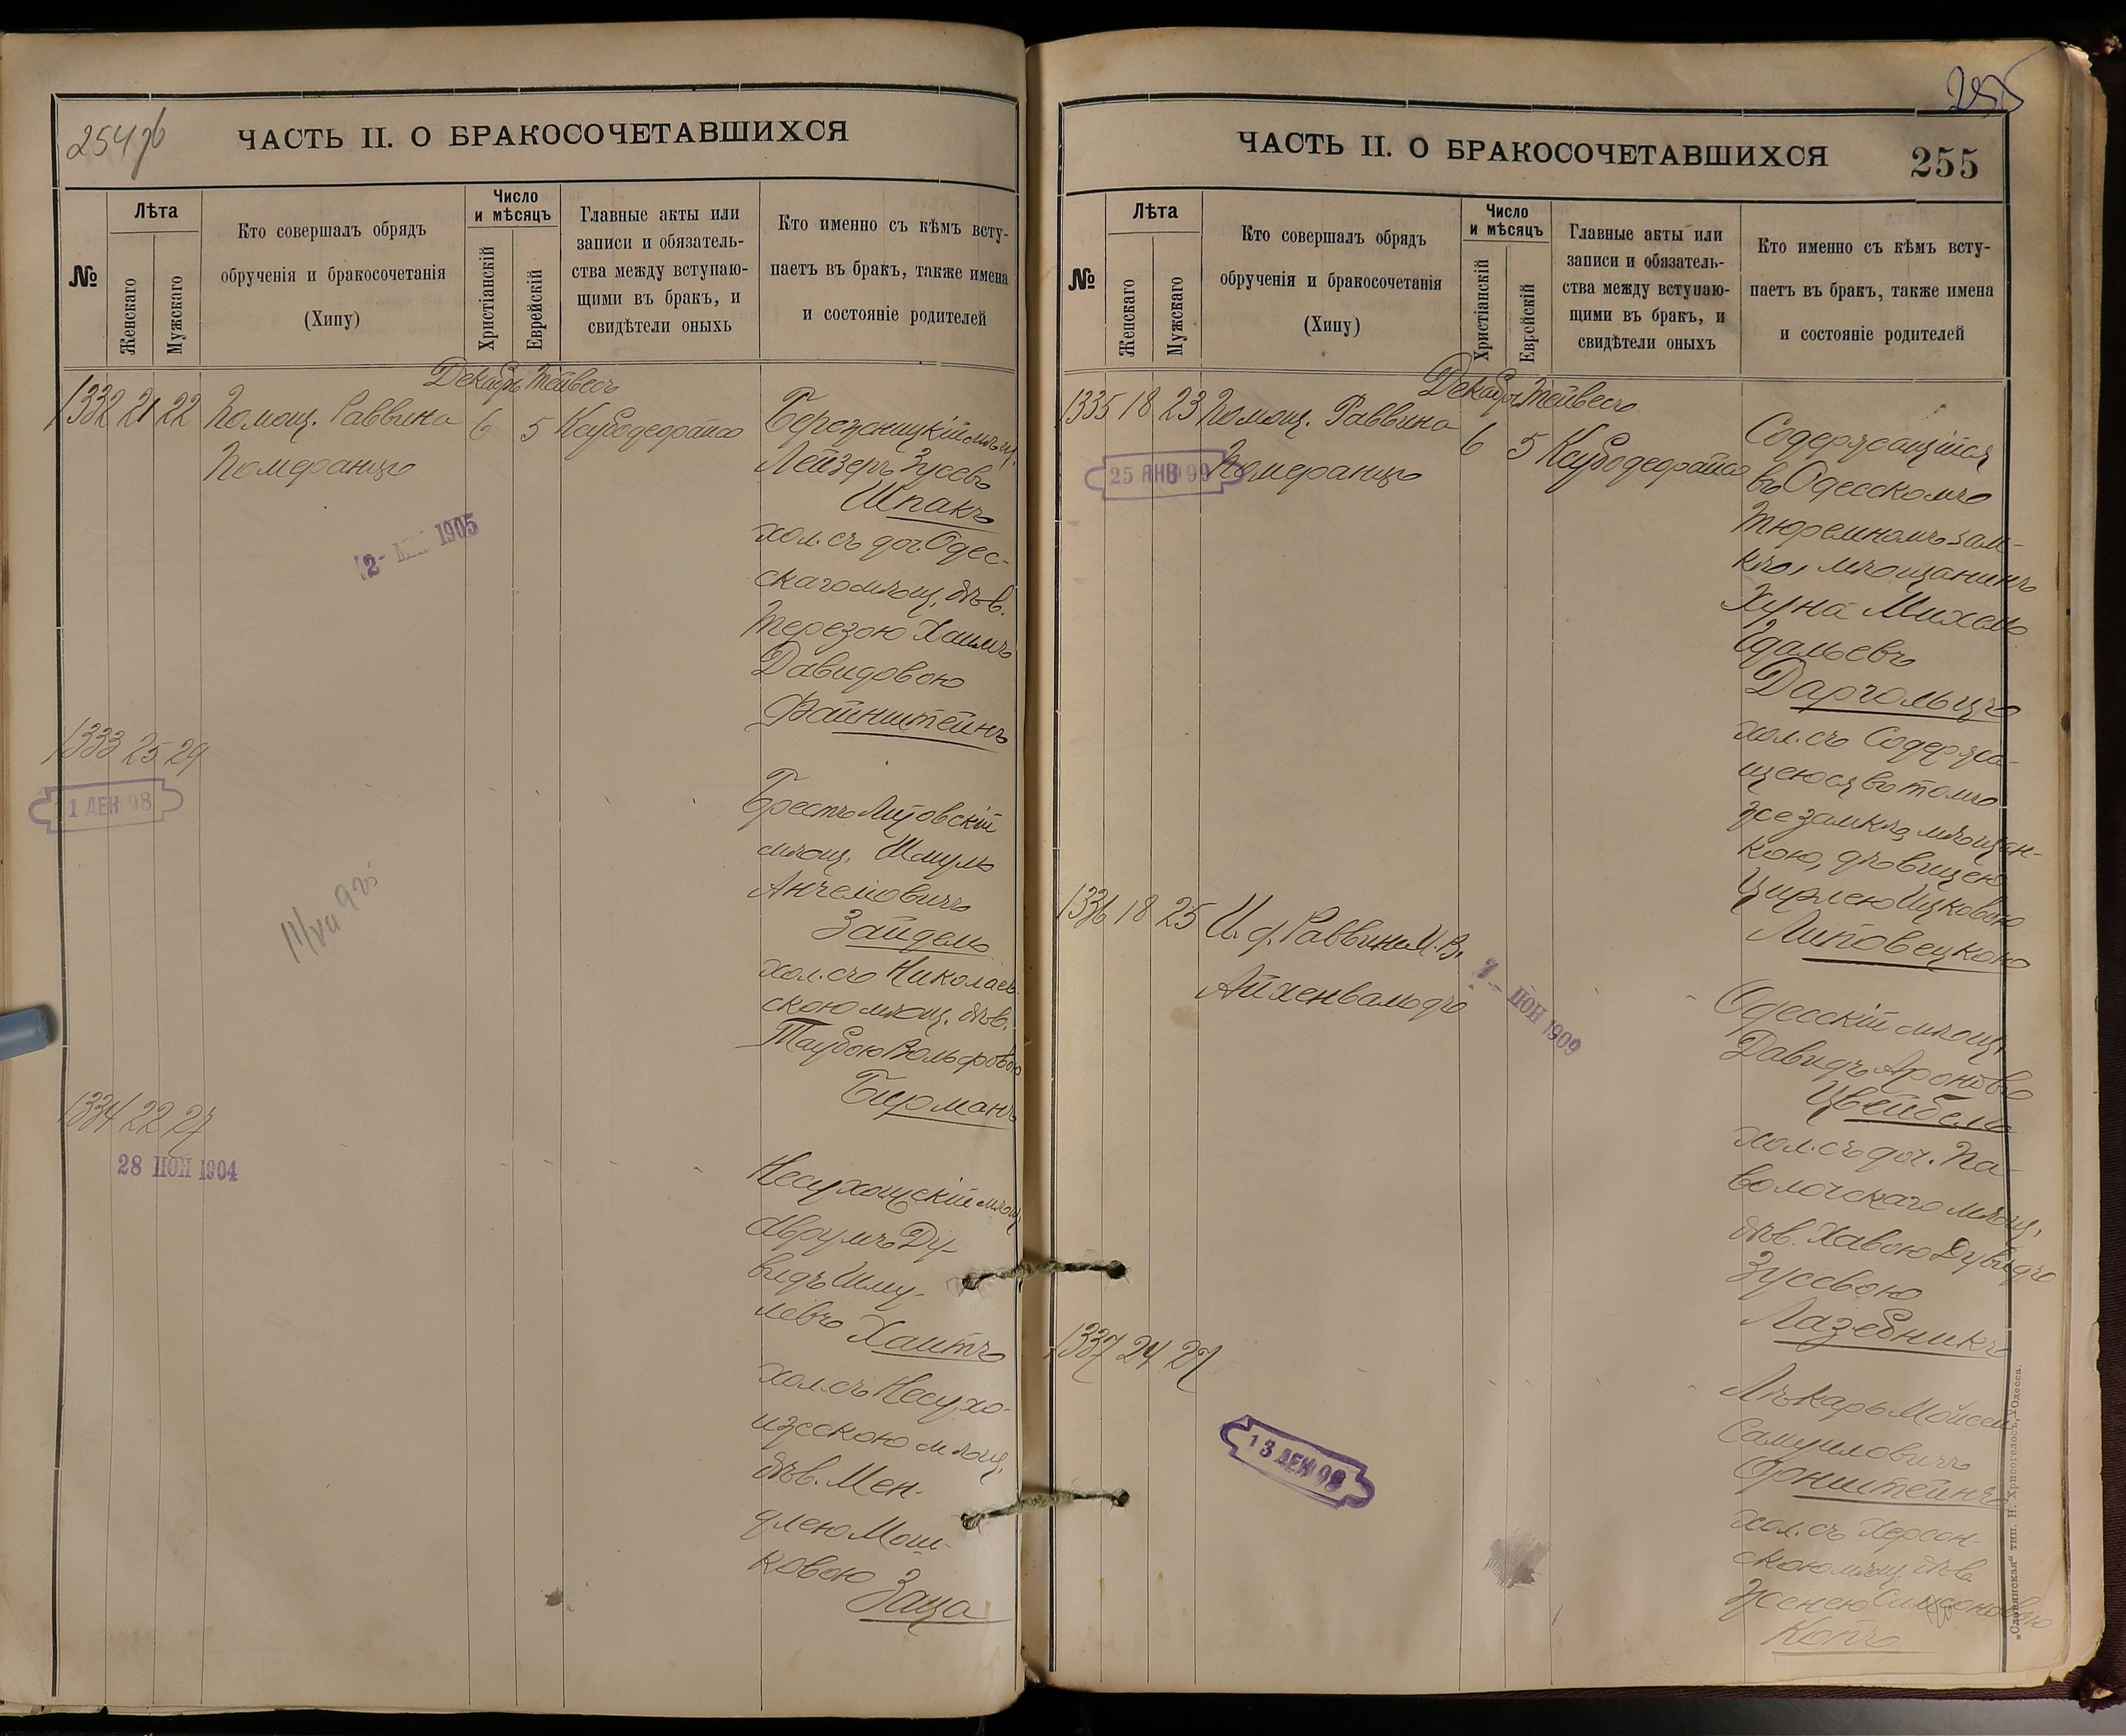 254 об
ЧАСТЬ II. О БРАКОСОЧЕТАВШИХСЯ
№
Лѣта
Женскаго
Мужскаго
Кто совершалъ обрядъ
обрученія и бракосочетанія
(Хипу)
Число
и мѣсяцъ
Христіанскій
Еврейскій
Главные акты или
записи и обязатель-
ства между вступаю-
щими въ бракъ, и
свидѣтели оныхъ
Кто именно съ кѣмъ всту-
паетъ въ бракъ, также имена
и состояніе родителей
Декабрь Тейвесъ
1332 21 22 Помощ. Раввина 6 5 Ксубодеорайса
Померанцъ
2- 1905
Лейзеръ Зусевъ
Шпакъ
хол. съ доч. Одес-
скаго мѣщ. дѣв.
Терезою Хаимъ
Давидовою
Файнштейнъ
1333 25 29
1 ДЕК 98
Брестъ Литовскій
мѣщ. Шмуль
Анчеловичъ
Зайдель
хол. съ Николаев-
скою мѣщ. дѣв.
Таубою Вольфовою
Бирманъ
1334 22 27
28 ІЮН 1904
мѣщ
Аврумъ Ду-
видъ Шму-
левъ Хаитъ
хол. съ Несухо-
ижескою мѣщ.
дѣв. Мен-
длею Мош-
ковою
Заца
255
ЧАСТЬ II. О БРАКОСОЧЕТАВШИХСЯ
255
№
Лѣта
Женскаго
Мужскаго
Кто совершалъ обрядъ
обрученія и бракосочетанія
(Хипу)
Число
и мѣсяцъ
Христіанскій
Еврейскій
Главные акты или
записи и обязатель-
ства между вступаю-
щими въ бракъ, и
свидѣтели оныхъ
Кто именно съ кѣмъ всту-
паетъ въ бракъ, также имена
и состояніе родителей
Декабрь Тейвесъ
1335 18 23 Помощ. Раввина 6 5 Ксубодеорайса
Померанцъ
25 ЯНВ 99
Содержащійся
въ Одесскомъ
тюремномъ зам-
кѣ, мѣщанинъ
Хуна Михель
Гдальевъ
Даргольцъ
хол. съ Содержа-
щеюся въ томъ
же замкѣ мѣщан-
кою, дѣвицею
Цирлею Ицковою
Липовецкою
1336 18 25 И. д. Раввина М. В.
Айхенвальдъ
7 - ІЮН 1909
Одесскій мѣщ.
Давидъ Ароновъ
Цвейбель
хол. съ доч. Па-
волочскаго мѣщ.
дѣв. Хавою Дувидъ
Зусевою
Лазебникъ
1337 24 27
13 ДЕК 98
Лѣкарь Мойсей
Самуиловичъ
Орнштейнъ
хол. съ Херсон-
скою мѣщ. дѣв.
Женею Симсоновою
Копъ
„Славянская“ тип. Н. Хрисогелосъ, Одесса.